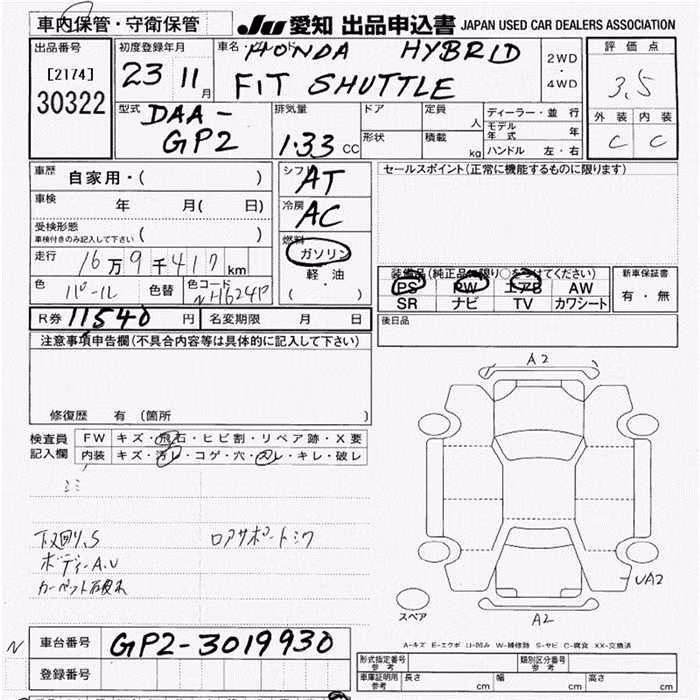 車内保管・守衛保管
JU 愛知 出品申込書 JAPAN USED CAR DEALERS ASSOCIATION
出品番号
[2174]
30322
初度登録年月
23 11 月
車名・グレード
HONDA HYBRID
FIT SHUTTLE
2WD
・
4WD
評価点
3.5
外装 内装
C C
型式
DAA-
GP2
排気量
1.33 CC
ドア
形状
定員 人
積載 kg
ディーラー・並行
モデル年式 年
ハンドル 左・右
車歴 自家用・( )
車検 年 月( 日)
受検形態
車検付きのみ記入して下さい ( )
走行 16万9千417 km
色 パール 色替 色コード NH624P
シフト AT
冷房 AC
燃料
ガソリン
軽油
( ・ )
セールスポイント(正常に機能するものに限ります)
装備品(純正品に限り○をつけてください)
PS PW エアB AW
SR ナビ TV カワシート
新車保証書
有・無
R券 11540 円 名変期限 月 日
後日品
注意事項申告欄(不具合内容等は具体的に記入して下さい)
修復歴 有 (箇所 )
検査員
記入欄
FW キズ・飛石・ヒビ割・リペア跡・X要
内装 キズ・汚レ・コゲ・穴・スレ・キレ・破レ
下廻り.S ロアサポートミワ
ボディーA.U
カーペット
A2
UA2
A2
スペア
A-キズ E-エクボ U-凹み W-補修跡 S-サビ C-腐食 XX-交換済
N
車台番号 GP2-3019930
登録番号
形式指定番号
参考
類別区分番号
参考
車庫証明用
参考
長さ cm 幅 cm 高さ cm